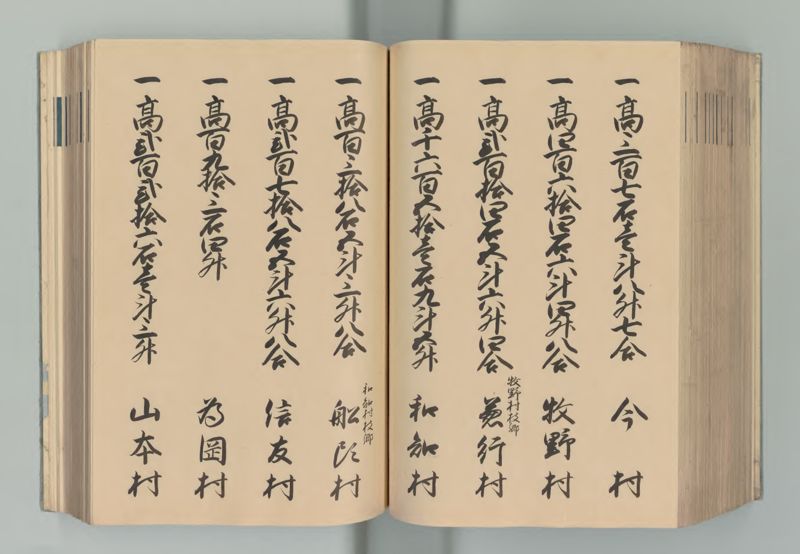 一 高三百七石壱斗八升七合 今村
一 高四百六拾四石六斗四升八合 牧野村
牧野村枝郷
一 高弐百拾四石五斗六升四合 兼行村
一 高千六百五拾壱石九斗五升 和知村
和知村枝郷
一 高百三拾八石五斗三升八合 船
一 高弐百七拾八石五斗六升八合 信友村
一 高百九拾三石四升 為岡村
一 高弐百弐拾六石壱斗三升 山本村